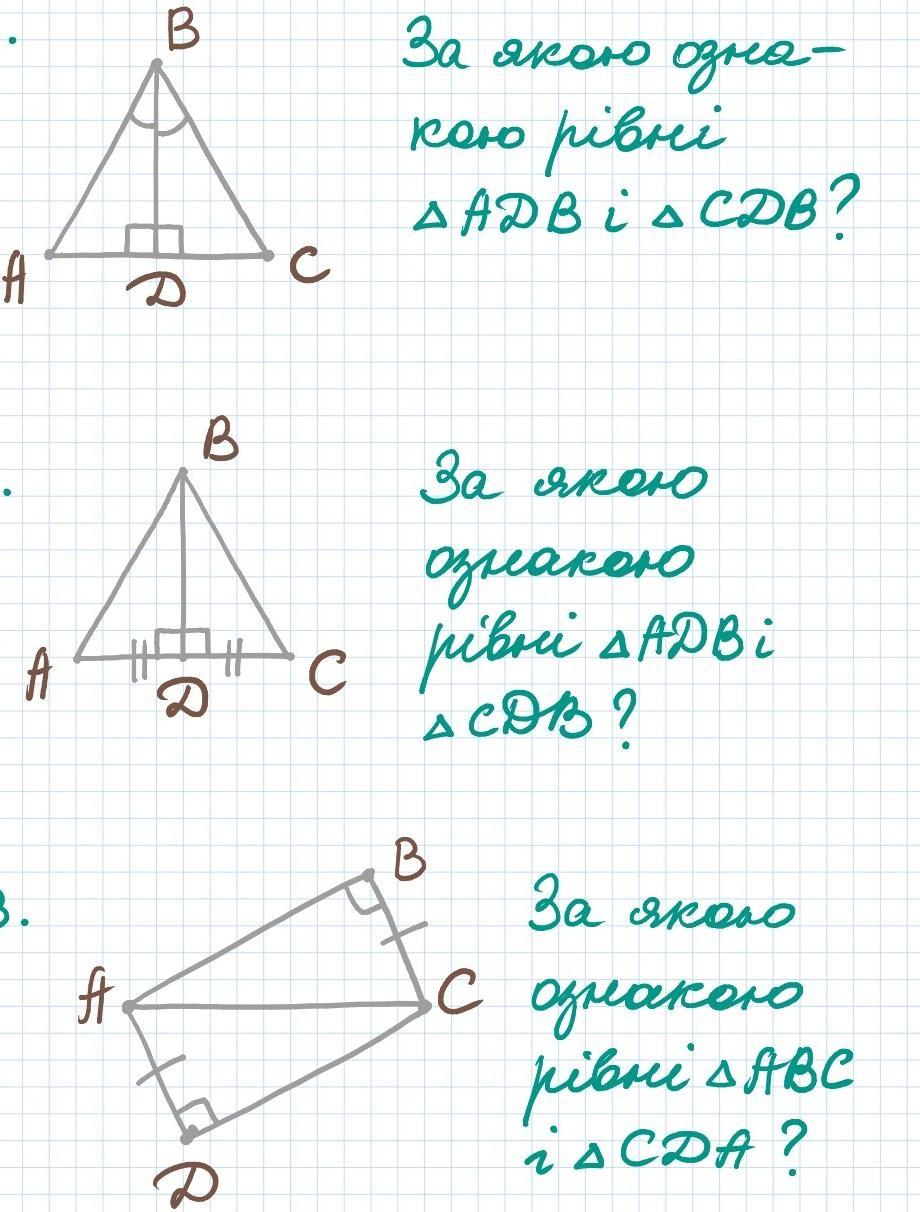 .
B
За якою озна-
кою рівні
△ADB і △CDB?
A
D
C
.
B
За якою
ознакою
рівні △ADB і
△CDB?
A
D
C
3.
B
За якою
ознакою
рівні △ABC
і △CDA?
A
C
D